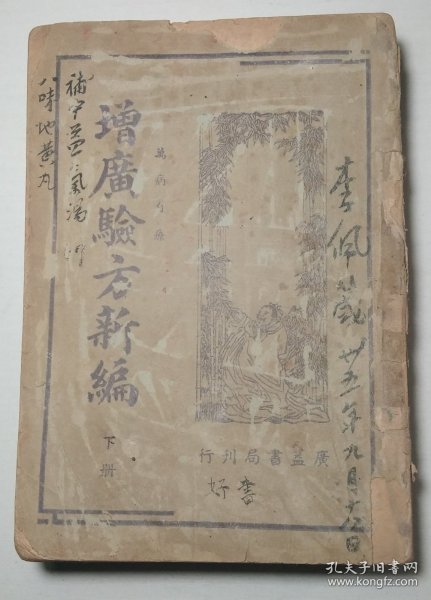 李佩
卅五年九月十八日
增廣驗方新編
萬病可療
下冊
廣益書局刊行
書好
補中益氣湯
八味地黃丸
孔夫子旧书网
www.kongfz.com